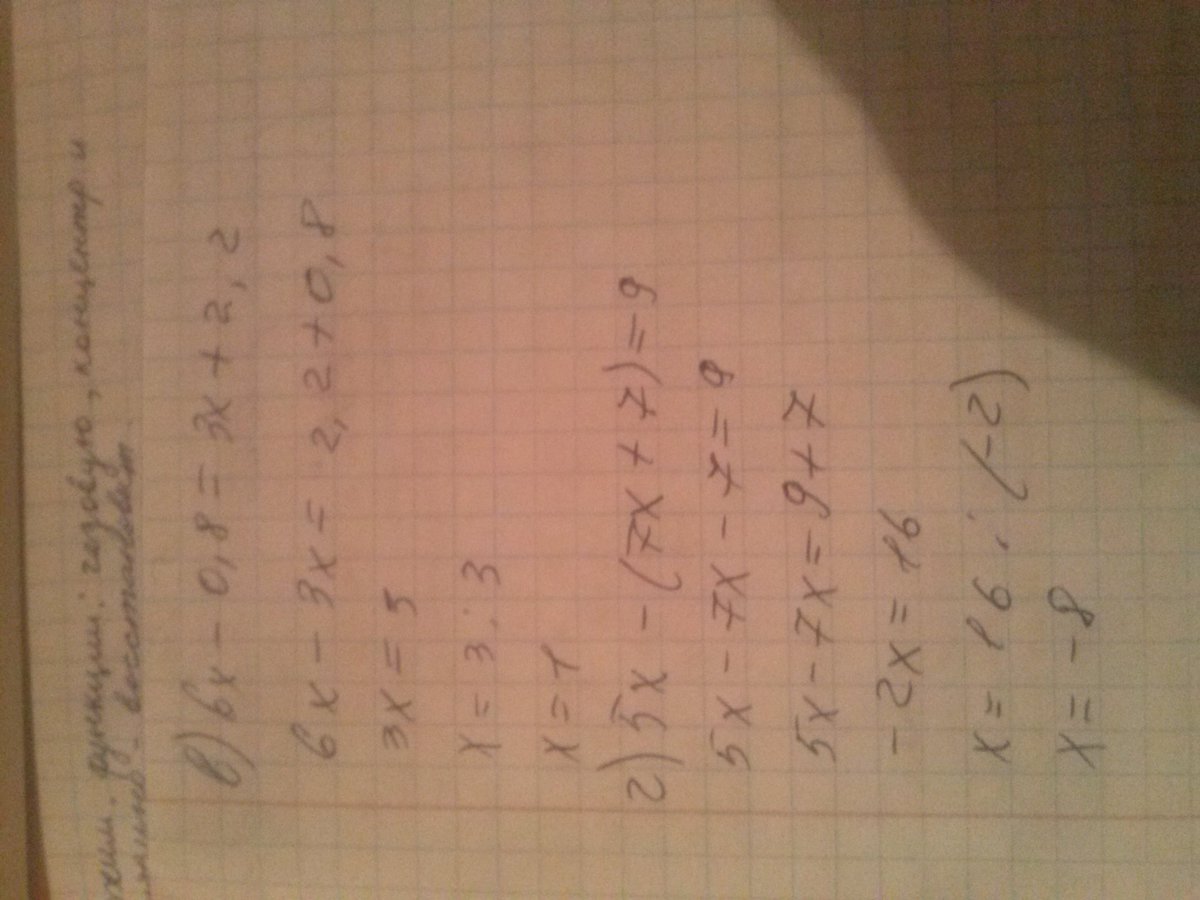 хим. функции: газовую, концентр и
восстановит.
в) 6x - 0,8 = 3x + 2,2
6x - 3x = 2,2 + 0,8
3x = 3
x = 3 : 3
x = 1
г) 5x - (7x + 7) = 9
5x - 7x - 7 = 9
5x - 7x = 9 + 7
- 2x = 16
x = 16 : (-2)
x = -8